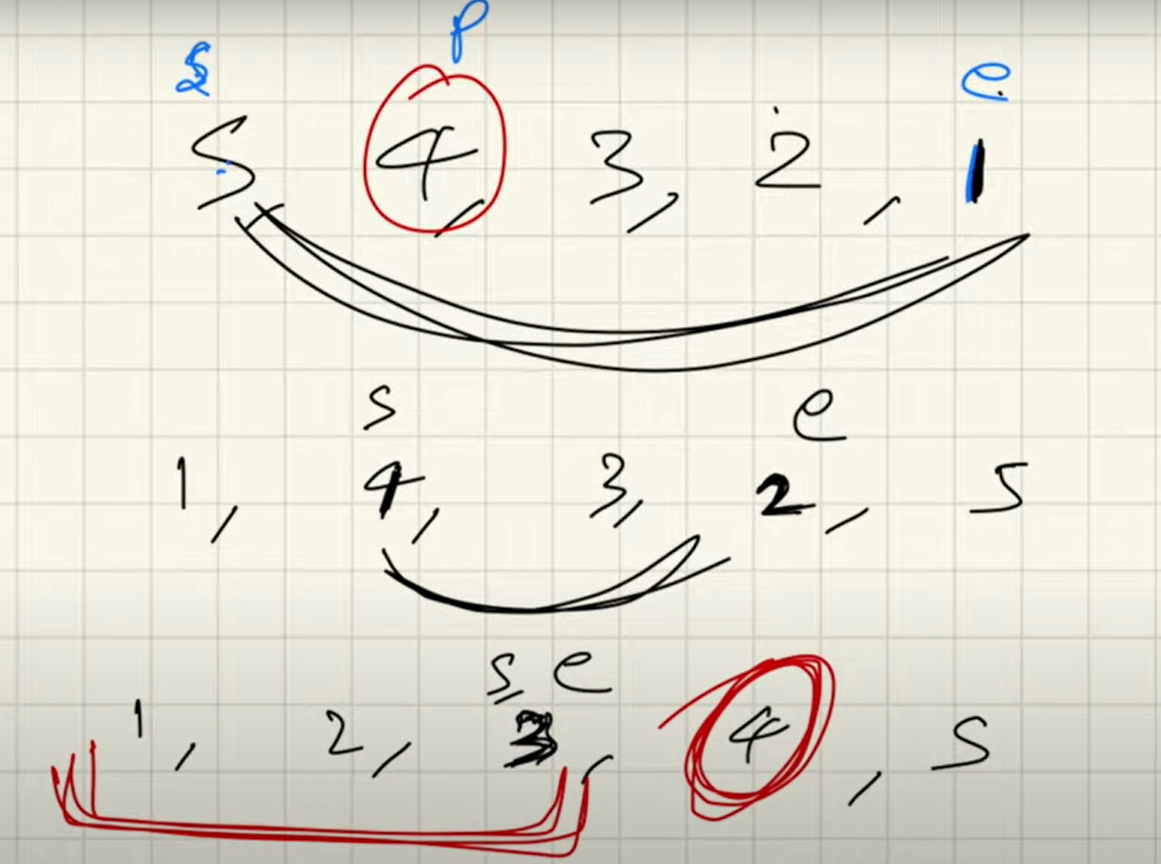 s p e
5 4, 3, 2, 1
s e
1, 4, 3, 2, 5
s, e
1, 2, 3, 4, 5